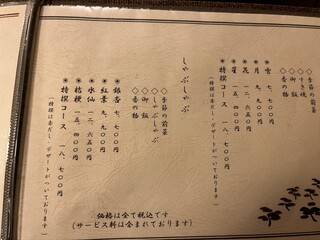 ◇季節の前菜
◇すき焼
◇御飯
◇香の物
＊雪 七、七〇〇円
＊月 九、九〇〇円
＊花 一二、六五〇円
＊星 一五、四〇〇円
＊特撰コース 一八、七〇〇円
（特撰は赤だし、デザートがついております）
しゃぶしゃぶ
◇季節の前菜
◇しゃぶしゃぶ
◇御飯
◇香の物
＊銀杏 七、七〇〇円
＊紅葉 九、九〇〇円
＊水仙 一二、六五〇円
＊桔梗 一五、四〇〇円
＊特撰コース 一八、七〇〇円
（特撰は赤だし、デザートがついております）
価格は全て税込です
（サービス料は含まれております）